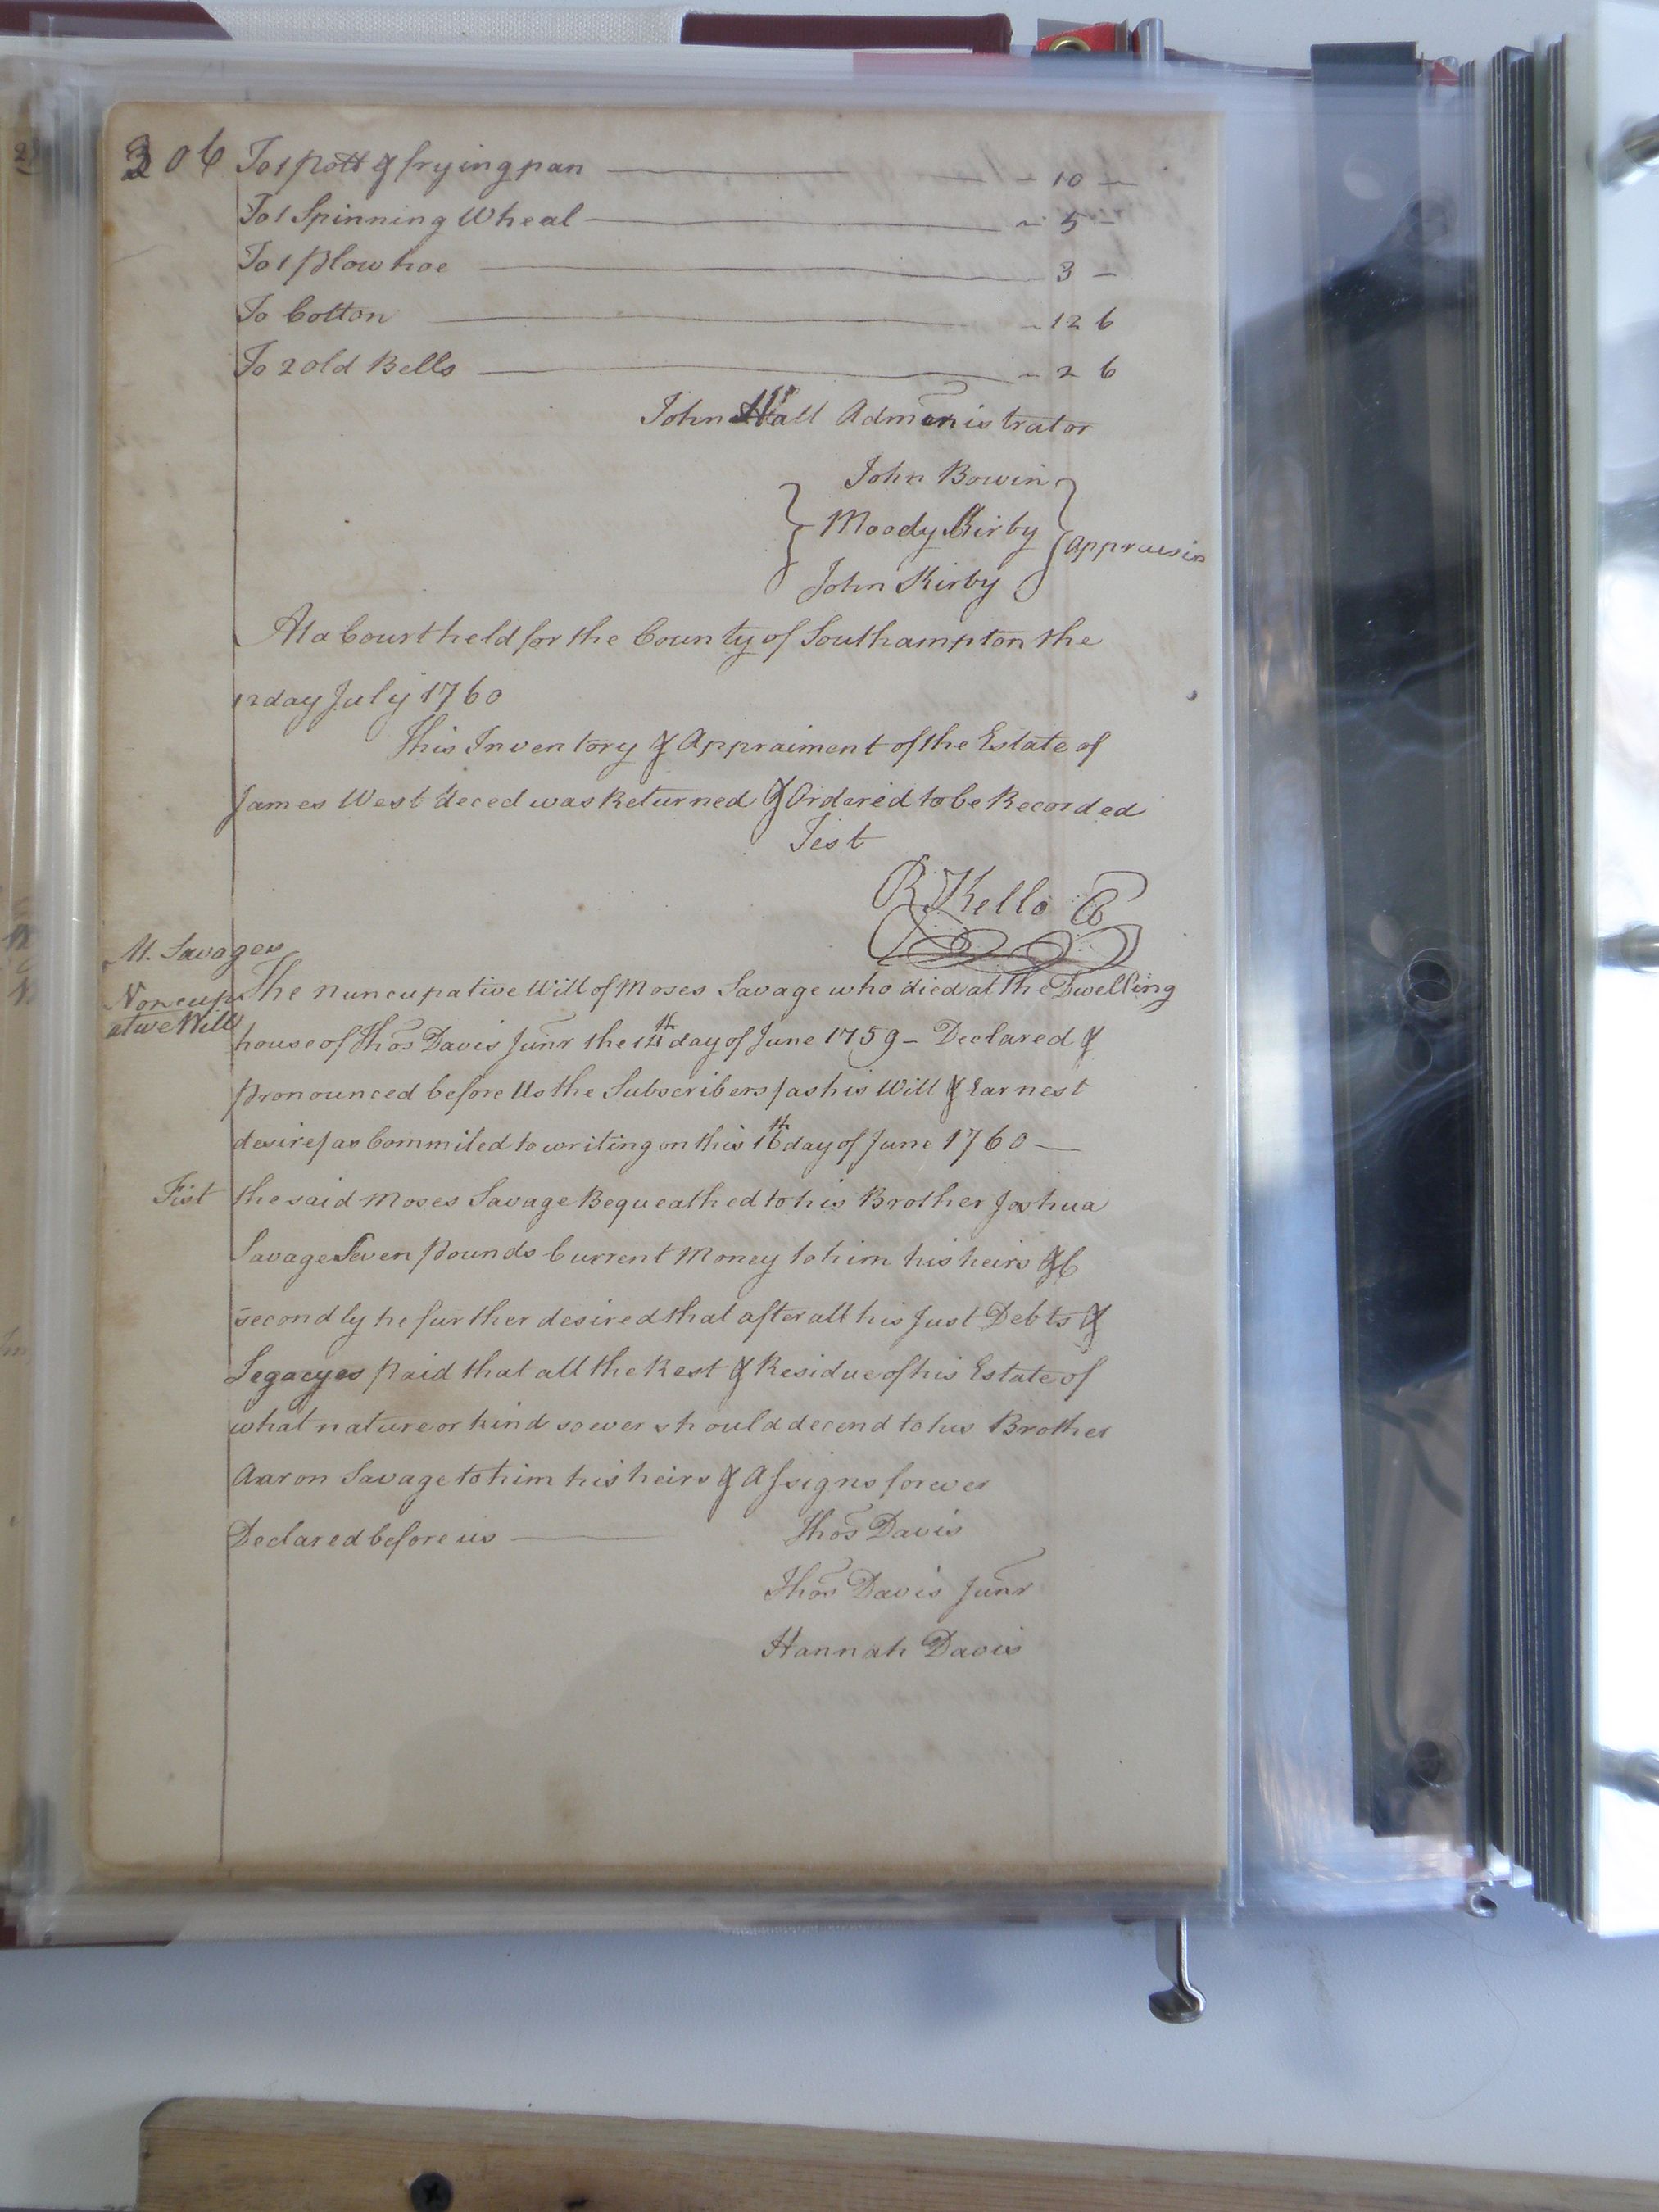 306 To 1 Pott & frying pan — 10 —
To 1 Spinning Wheal — 5 —
To 1 Plow hoe — 3 —
To Cotton — 12 6
To 2 old Bells — 2 6
John Hall Admenistrator
John Bowin
Moody Kirby
John Kirby
Appraisis
At a Court held for the County of Southampton the
day July 1760
This Inventory & Appraiment of the Estate of
James West deced was Returned & Ordered to be Recorded
Test
R. Kello
M. Savages
Noncup
ative Will
The nuncupative Will of Moses Savage who died at the Dwelling
house of Thos Davis Junr the 14th day of June 1759 – Declared &
pronounced before Us the Subscribers / as his Will & Earnest
desire / as Commited to writing on this 16th day of June 1760 —
Fist the said Moses Savage Bequeathed to his Brother Joshua
Savage Seven Pounds Current Money to him his heirs &c
secondly he further desired that after all his Just Debts &
Legacyes paid that all the Rest & Residue of his Estate of
what nature or kind soever should decend to his Brother
Aaron Savage to him his heirs & Assigns forever
Declared before us — Thos Davis
Thos Davis Junr
Hannah Davis